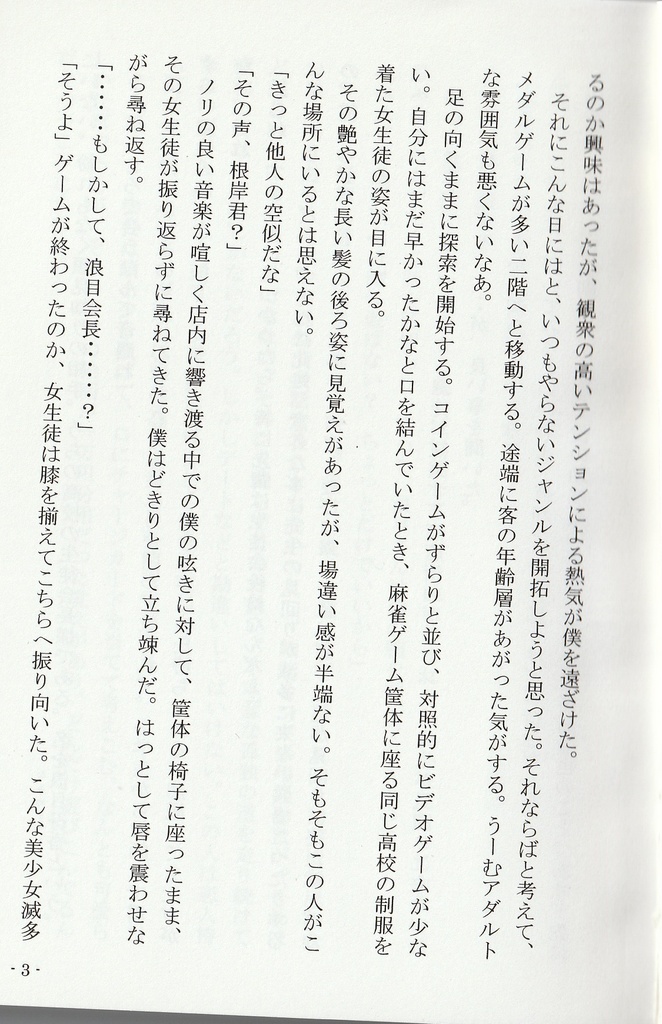 るのか興味はあったが、観衆の高いテンションによる熱気が僕を遠ざけた。
それにこんな日にはと、いつもやらないジャンルを開拓しようと思った。それならばと考えて、
メダルゲームが多い二階へと移動する。途端に客の年齢層があがった気がする。うーむアダルト
な雰囲気も悪くないなあ。
足の向くままに探索を開始する。コインゲームがずらりと並び、対照的にビデオゲームが少な
い。自分にはまだ早かったかなと口を結んでいたとき、麻雀ゲーム筐体に座る同じ高校の制服を
着た女生徒の姿が目に入る。
その艶やかな長い髪の後ろ姿に見覚えがあったが、場違い感が半端ない。そもそもこの人がこ
んな場所にいるとは思えない。
「きっと他人の空似だな」
「その声、根岸君？」
ノリの良い音楽が喧しく店内に響き渡る中での僕の呟きに対して、筐体の椅子に座ったまま、
その女生徒が振り返らずに尋ねてきた。僕はどきりとして立ち竦んだ。はっとして唇を震わせな
がら尋ね返す。
「……もしかして、浪目会長……？」
「そうよ」ゲームが終わったのか、女生徒は膝を揃えてこちらへ振り向いた。こんな美少女滅多
- 3 -